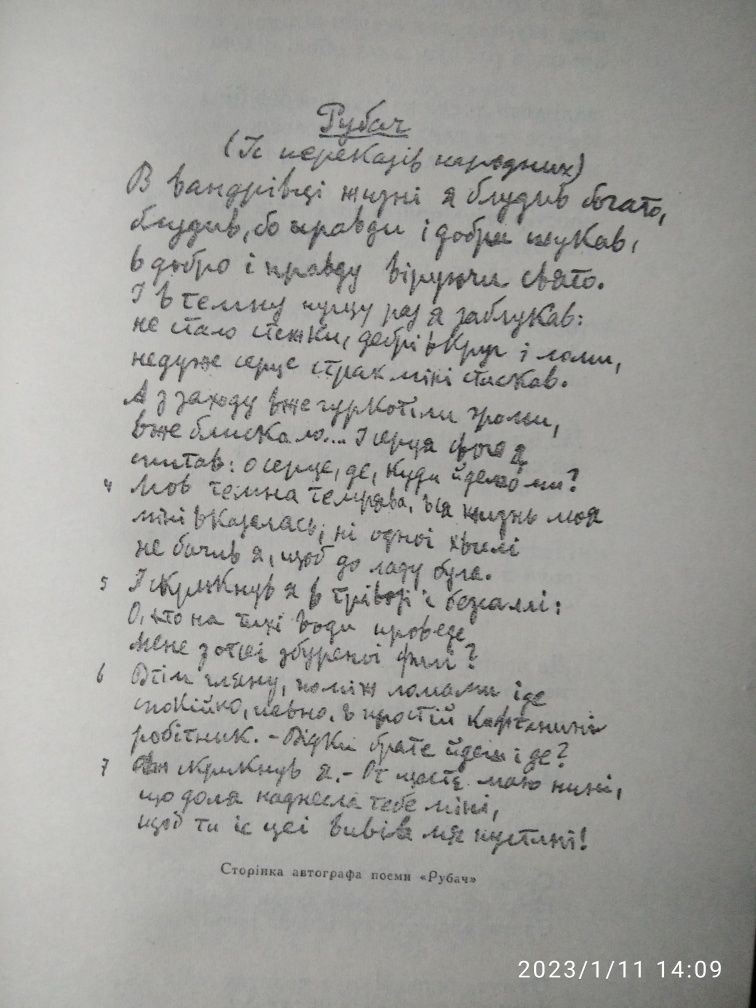 Рубач
(Із переказів народних)
В вандрівці жизні я блудив богато,
блудив, бо правди і добра шукав,
в добро і правду віруючи свято.
І в темну пущу раз я заблукав:
не стало стежки, дебрі вкруг і ломи,
недуже серце страх міні стискав.
А з заходу вже гуркотіли громи,
вже блискало... І серця свого я
питав: о серце, де, куди йдемо ми?
4 Мов темна темрява, вся жизнь моя
міні вказалась; ні одної хвилі
не бачив я, щоб до ладу була.
5 І крикнув я в трівозі й безсиллі:
О, хто на тихі води проведе
мене з отсеї збуреної филі?
6 Втім гляну, поміж ломами іде
спокійно, певно, в простій кафтанині
робітник. – Відки брате йдеш і де?
7 крикнув я. – От щастє маю нині,
що доля наднесла тебе міні,
щоб ти із цеї вивів мя пустині!
Сторінка автографа поеми «Рубач»
2023/1/11 14:09